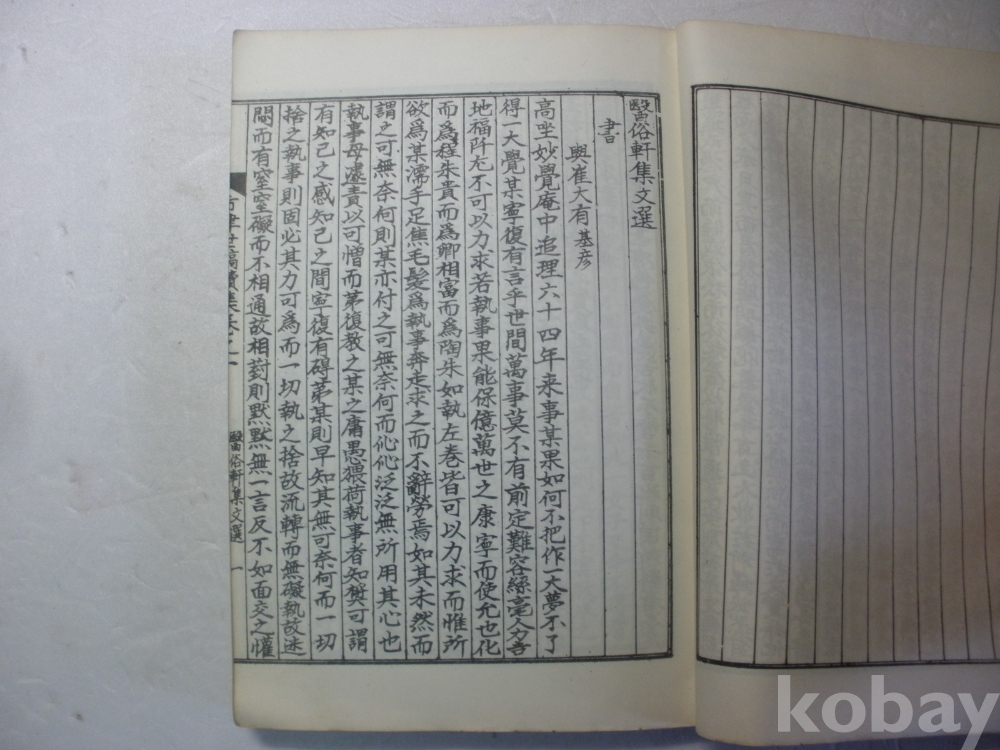 醫俗軒集文選
書
與崔大有 基彦
高坐妙覺庵中追理六十四年来事某果如何不把作一大夢不了
得一大覺某寧復有言乎世間萬事莫不有前定難容絲毫人力吉
地福阡尤不可以力求若執事果能保億萬世之康寧而使允也化
而為程朱貴而為卿相富而為陶朱如執左巻皆可以力求而惟所
欲為某濡手足焦毛髮為執事奔走求之而不辭勞焉如其未然而
謂之可無奈何則某亦付之可無奈何而仳仳泛泛無所用其心也
執事毋遽責以可憎而第復教之某之庸愚猥荷執事者知奬可謂
有知己之感知己之間寧復有碍第某則早知其無可奈何而一切
捨之執事則固必其力可為而一切執之捨故流轉而無礙執故迷
悶而有窒礙而不相通故相對則默默無一言反不如面交之懽
世稿續集卷之一
醫俗軒集文選
一
kobay